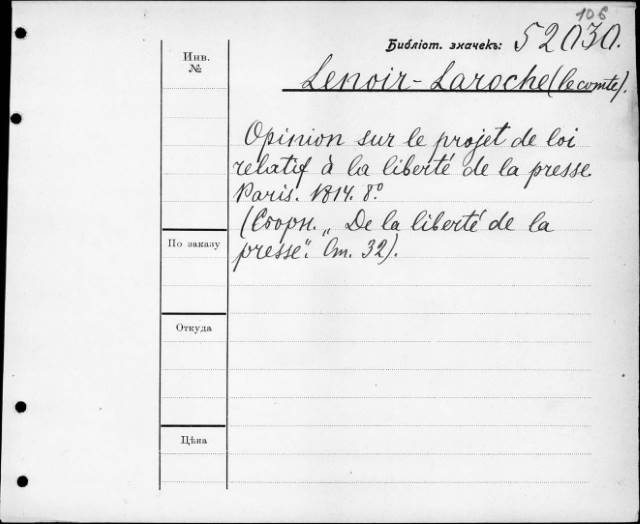 106
Библіот. значекъ: 52030.
Инв.
№
Lenoir-Laroche (le comte).
Opinion sur le projet de loi
relatif à la liberté de la presse.
Paris. 1814. 8º
(Сборн. „De la liberté de la
presse“. От. 32).
По заказу
Откуда
Цѣна